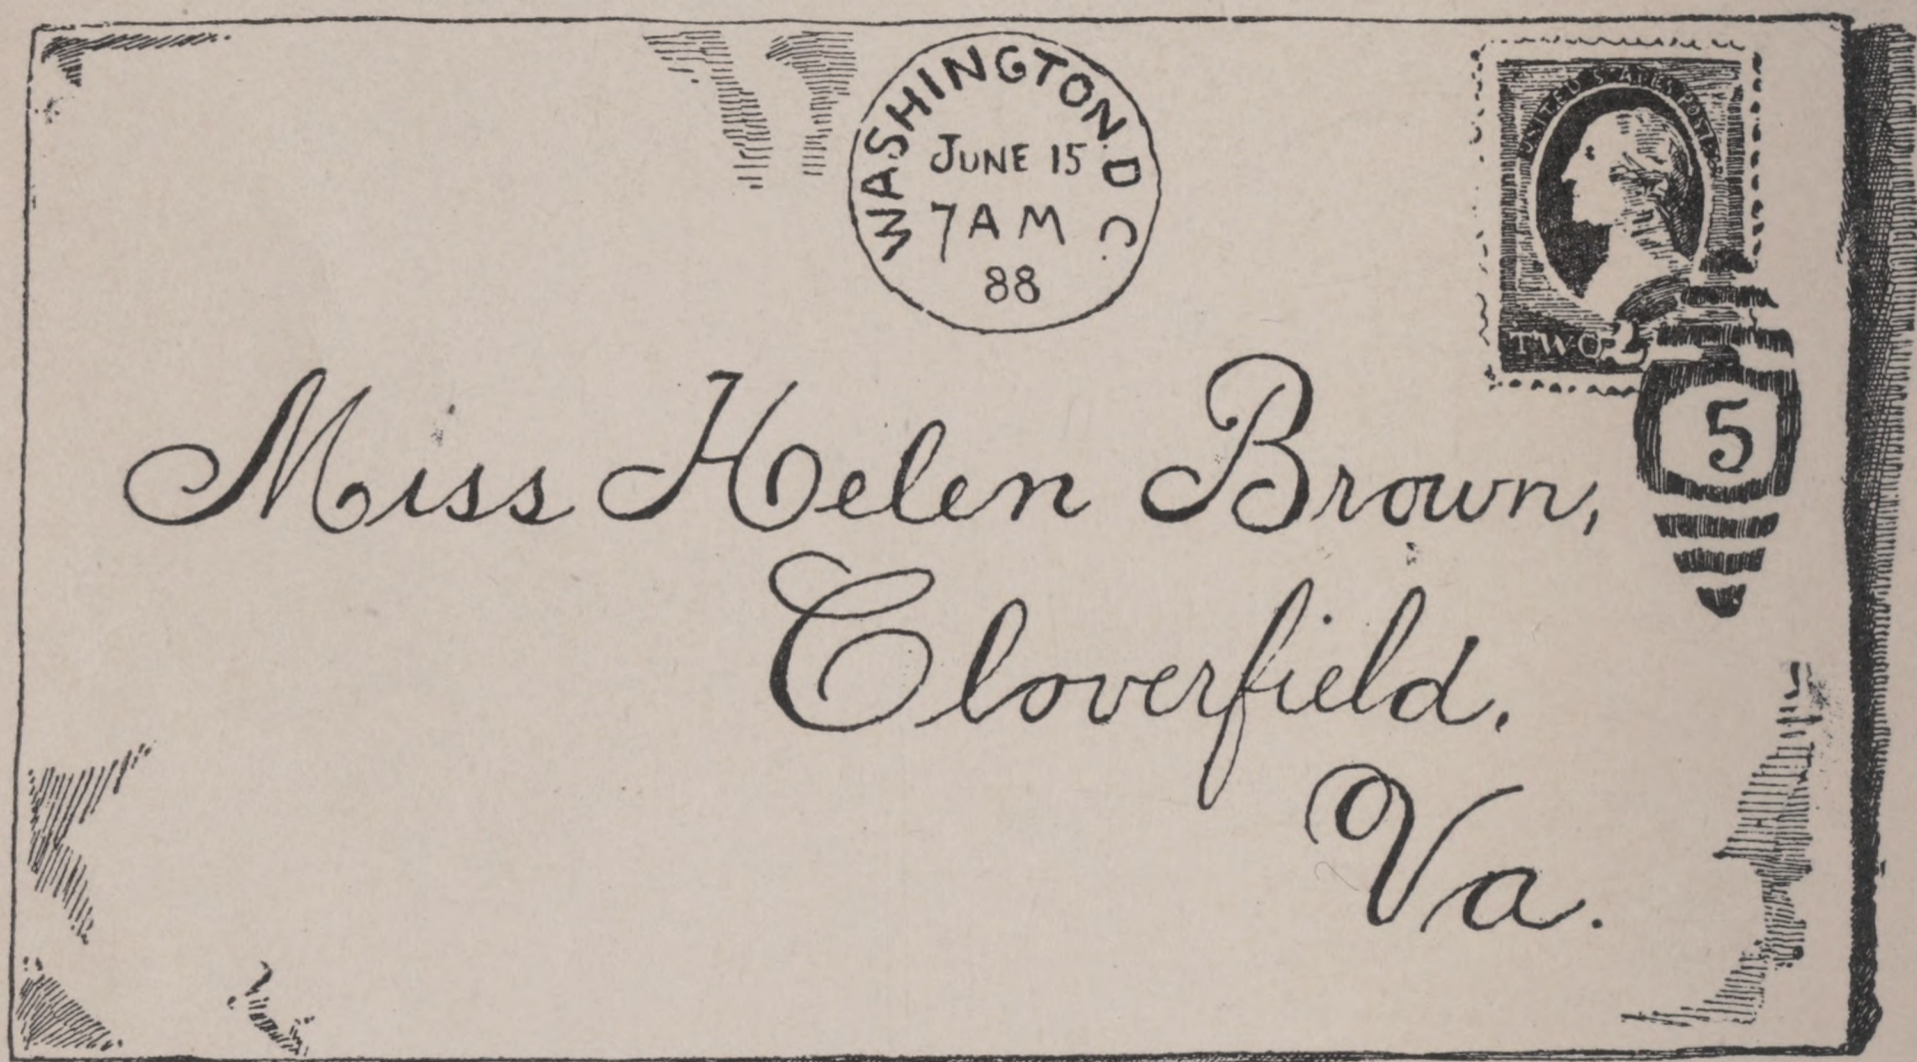 WASHINGTON. D C.
JUNE 15
7 A M
88
UNITED STATES POSTAGE
TWO 2
5
Miss Helen Brown,
Cloverfield.
Va.